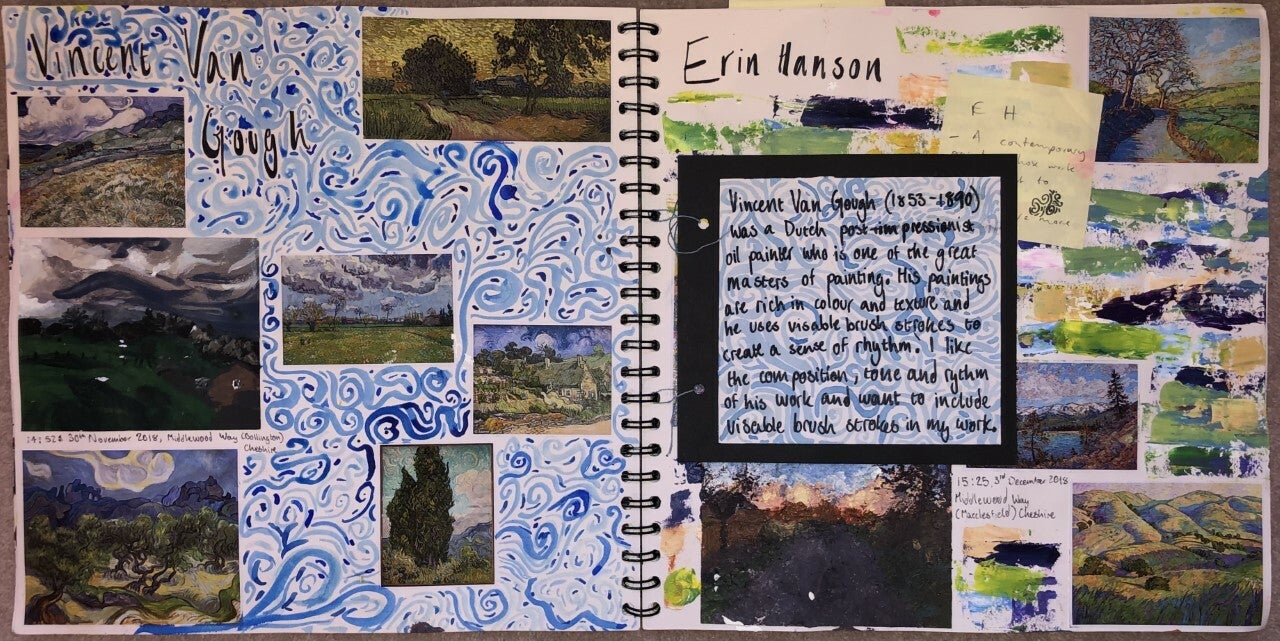 Vincent Van
Gough
14:52 30th November 2018, Middlewood Way (Bollington)
Cheshire
Erin Hanson
E H
- A contemporary
work
to
more
Vincent Van Gough (1853-1890)
was a Dutch post-impressionist
oil painter who is one of the great
masters of painting. His paintings
are rich in colour and texture and
he uses visable brush strokes to
create a sense of rhythm. I like
the composition, tone and rythm
of his work and want to include
visable brush strokes in my work.
15:25, 3rd December 2018
Middlewood Way
(Macclesfield) Cheshire